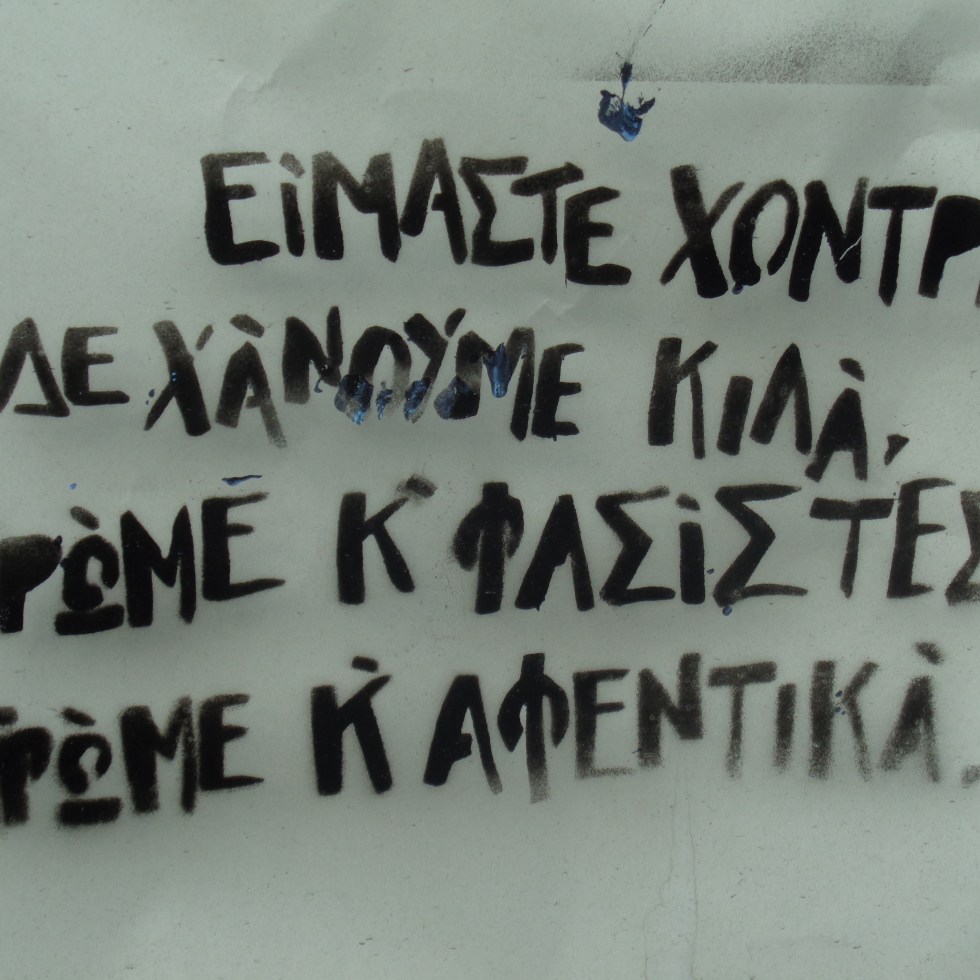 ΕίΜΑΣΤΕ ΧΟΝΤΡ
ΔΕ ΧΆΝΟΎΜΕ ΚΙΛΆ,
ΡΏΜΕ Κ' ΦΑΣίΣΤΕΣ
ΡΏΜΕ Κ' ΑΦΕΝΤΙΚΆ.